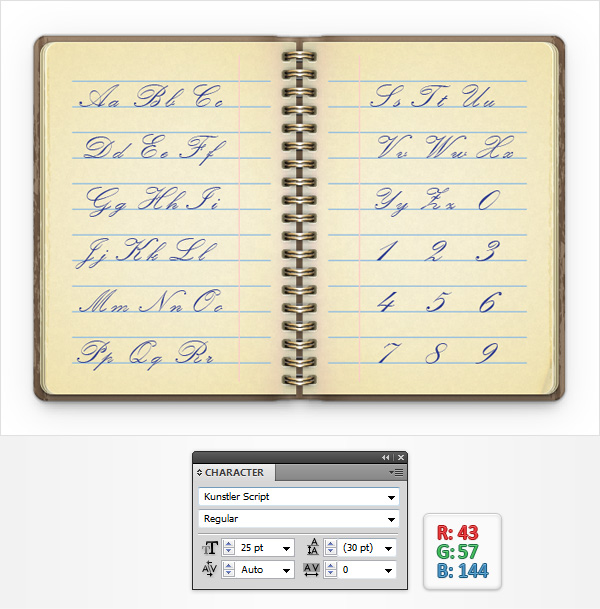 Aa Bb Cc
Dd Ee Ff
Gg Hh Ii
Jj Kk Ll
Mm Nn Oo
Pp Qq Rr
Ss Tt Uu
Vv Ww Xx
Yy Zz 0
1 2 3
4 5 6
7 8 9
CHARACTER
Kunstler Script
Regular
25 pt (30 pt)
Auto 0
R: 43
G: 57
B: 144